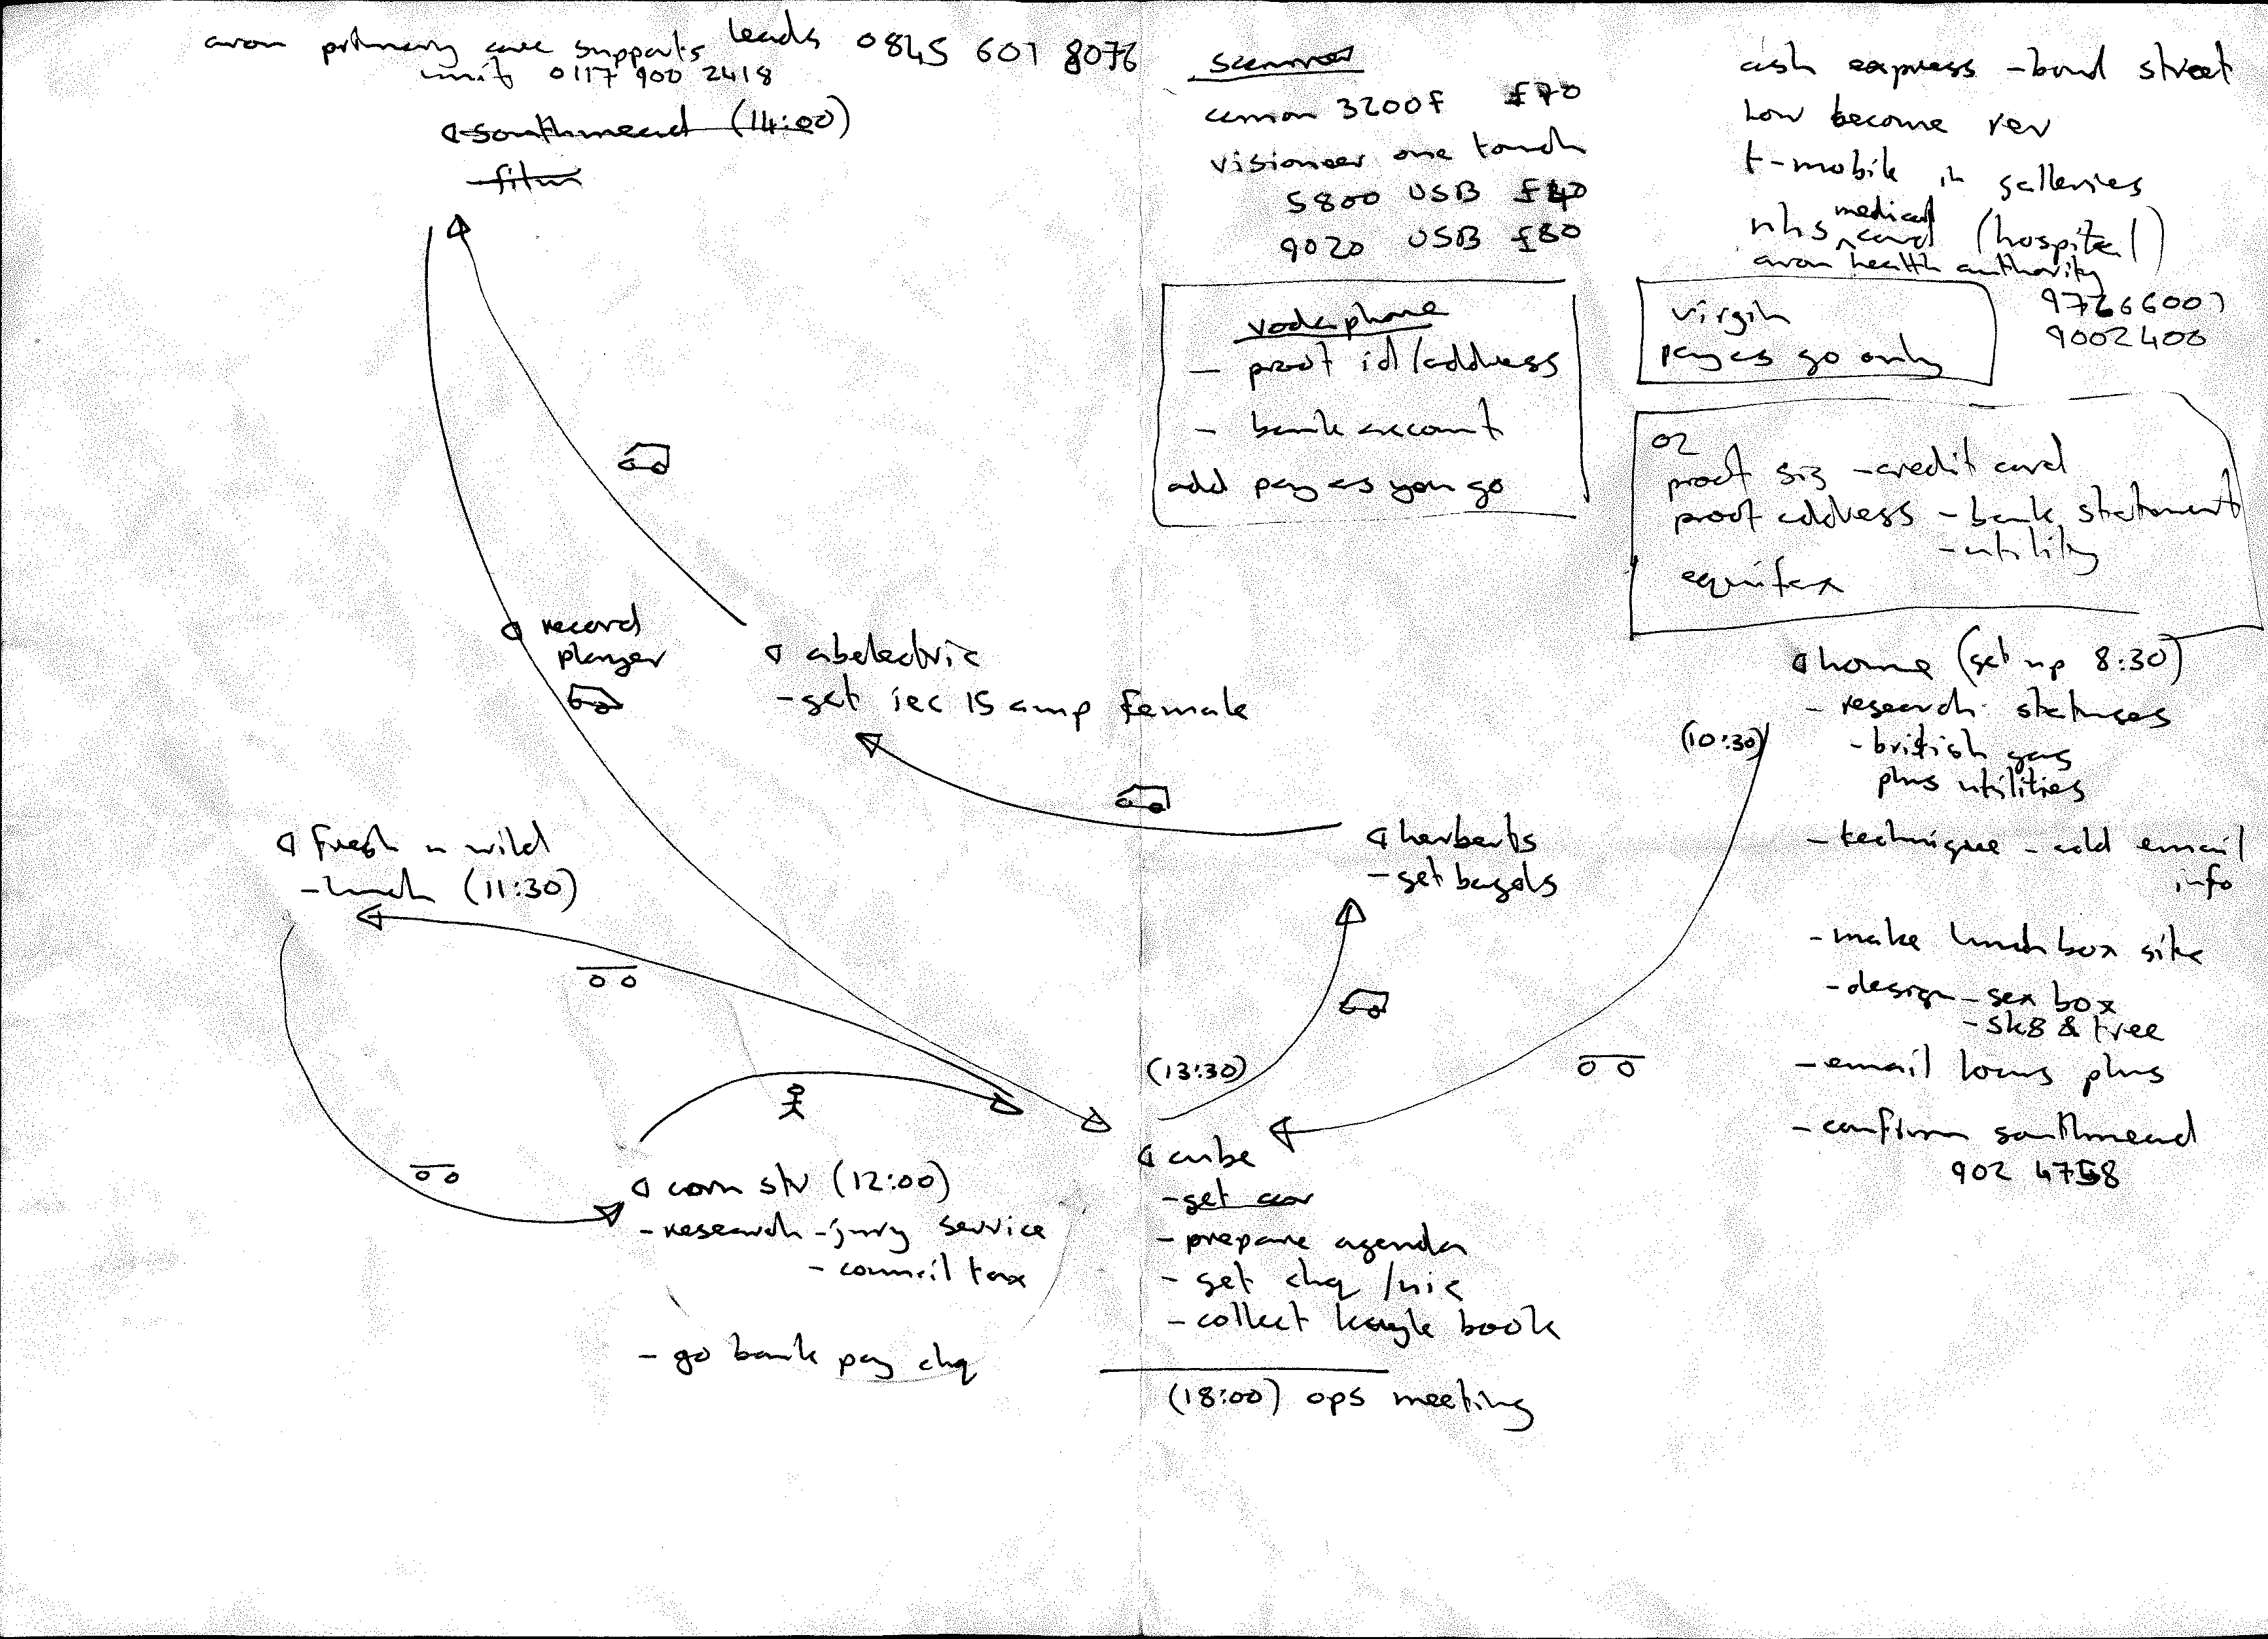 avon primary care supports leads 0845 601 8076
unit 0117 900 2418
southmead (14:00)
- film
scanner
canon 3200F £70
visioneer one touch
5800 USB £40
9020 USB £80
vodaphone
- proof id/address
- bank account
add pay as you go
cash express - bond street
how become rev
t-mobile in galleries
nhs medical card (hospital)
avon health authority
9766600
9002400
virgin
pay as go only
O2
proof sig - credit card
proof address - bank statement
- utility
equifax
record
player
abelectric
- get iec 15 amp female
home (get up 8:30)
- research statuses
- british gas
plus utilities
- technique - add email
info
- make lunchbox site
- design - sex box
- sk8 & tree
- email locus plus
- confirm southmead
902 4758
(10:30)
herberts
- get bagels
fresh n wild
- lunch (11:30)
(13:30)
corn str (12:00)
- research - jury service
- council tax
- go bank pay chq
cube
- get car
- prepare agenda
- get chq /nic
- collect book
(18:00) ops meeting